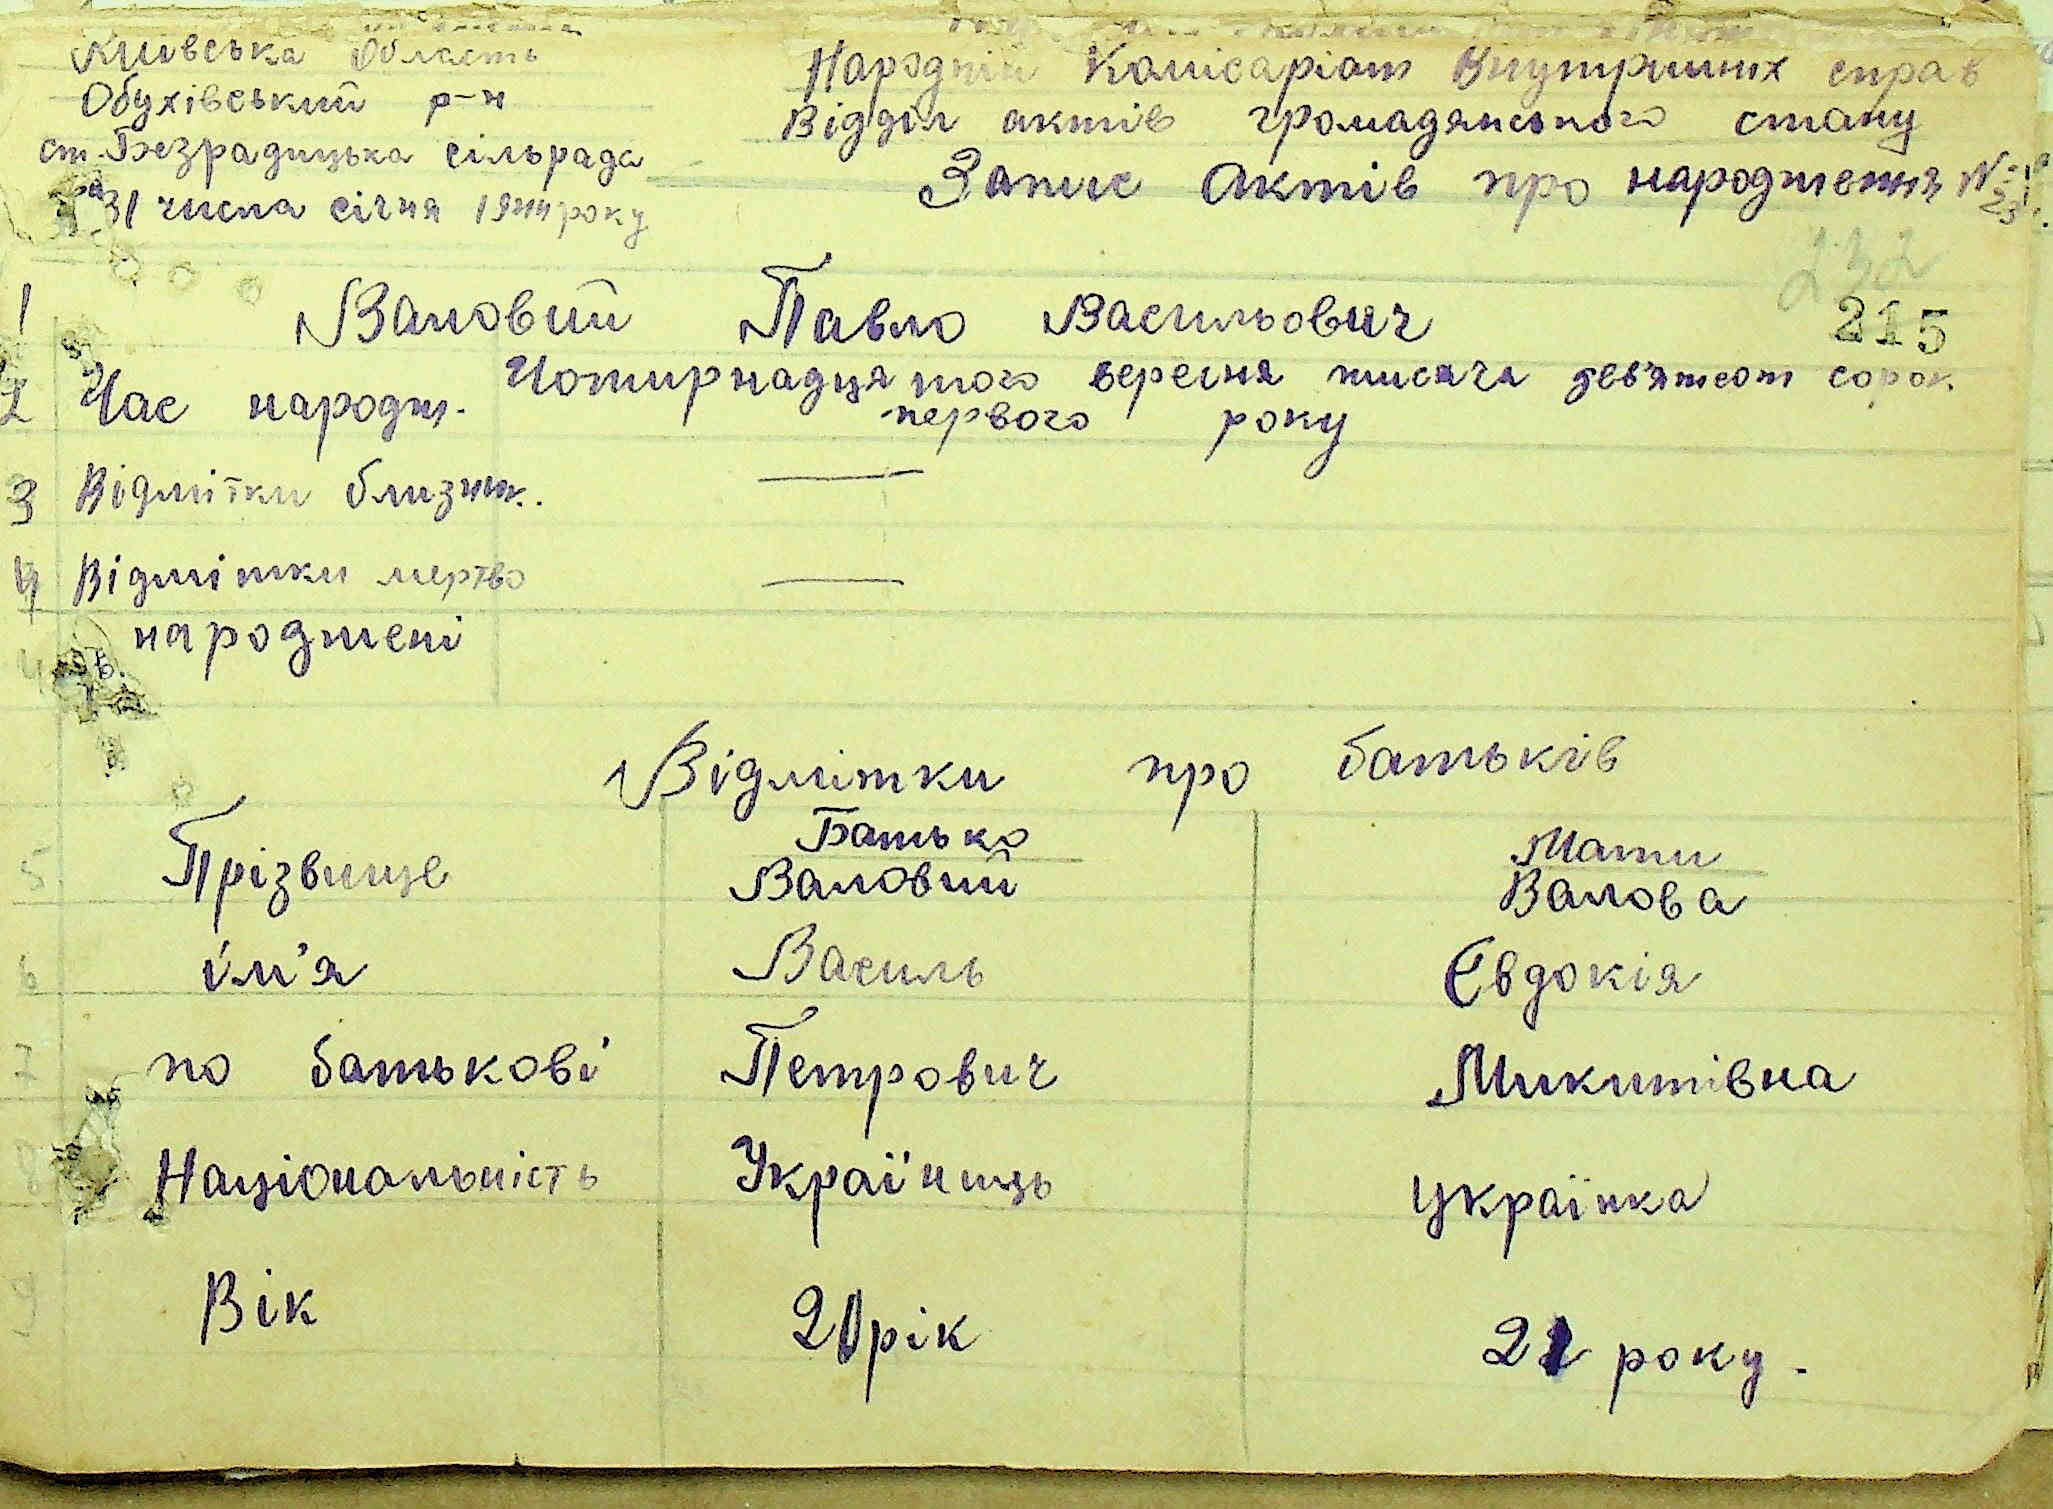 Київська Область
Обухівський р-н
ст. Безрадицька сільрада
31 числа січня 1944 року
Народній Комісаріат Внутришніх справ
Відділ актів громадянського стану
Запис Актів про народження №
232
215
1 Валовий Павло Васильович
2 Час народж. Чотирнадцятого вересня тисяча дев'ятсот сорок
первого року
3 Відмітки близнюк. —
4 Відмітки мертво —
народжені
Відмітки про батьків
Батько Мати
5 Прізвище Валовий Валова
6 ім'я Василь Євдокія
7 по батькові Петрович Микитівна
8 Національність Українець Українка
9 Вік 21 рік 21 року.